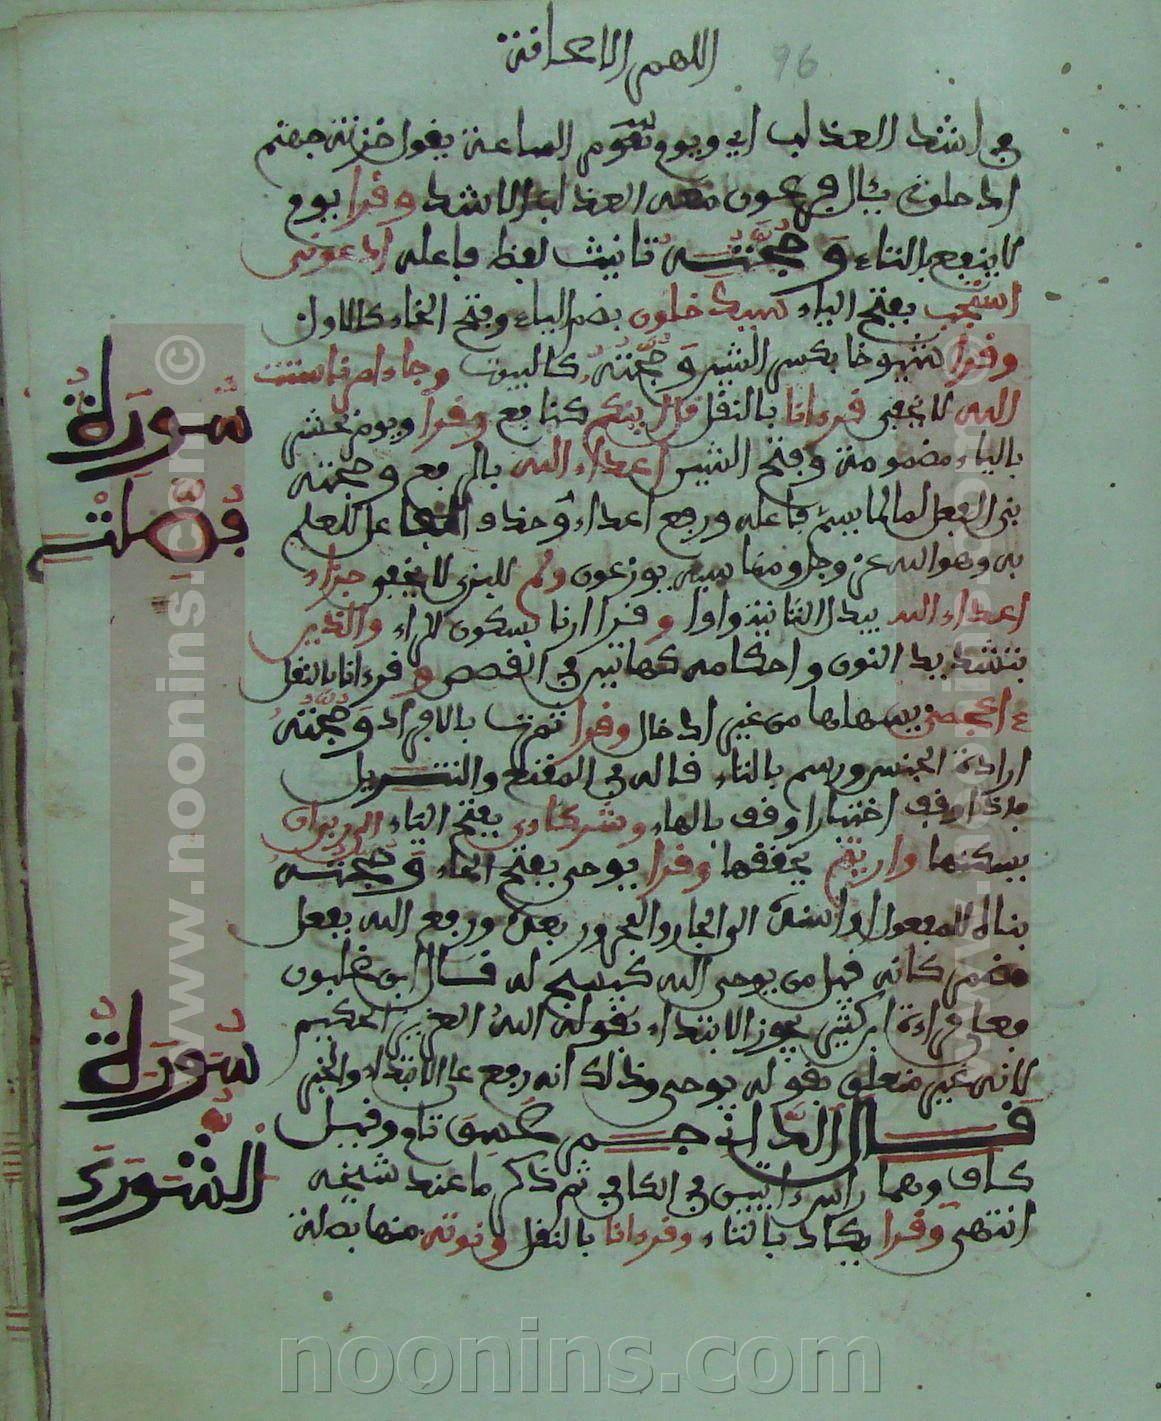 اللهم الاعانة
96
في اشد العذاب اي ويوم تقوم الساعة يقول خزنة جهنم
ادخلوا يال فرعون معه العذاب الاشد وقرا يوم
لا ينفع بالتاء وحجته تانيث لفظ فاعله ادعوني
استجب بفتح الياء سيدخلون بضم الياء وفتح الخاء كالاول
وقرا شيوخا بكسر الشين وحجته كالبيوت وجاء امر
الله لا يخفى قرءانا بالنقل قال اينكم كنافع وقرا ويوم يحشر
بالياء مضمومة وفتح الشين اعداء الله بالرفع وحجته
بنى الفعل لما لم يسم فاعله ورفع اعداء وحذف الفاعل للعلم
به وهو الله عز وجل ومناسبة يوزعون ولم لا يخفو جزاء
اعداء الله ببدل الثانية واوا وقرا ارنا بسكون الراء والذين
بتشديد النون واحكامه كهاتين في القصص وقرءانا بالنقل
ءاعجمي يسهلها من غير ادخال وقرا ثمرت بالافراد وحجته
ارادة الجنس ورسم بالتاء قاله في المقنع والتنزيل
اختبارا وقف بالهاء وشركاءي بفتح الياء الى ربي ان
يسكنها واريتم يحققها وقرا يوحى بفتح الحاء وحجته
بناه للمفعول واسنده الى الجار والمجرور بعده ورفع الله بفعل
مضمر كانه قيل من يوحي الله كيسبح له قال ابن غلبون
فعلى قراءة ابن كثير يجوز الابتداء بقوله الله العزيز الحكيم
لانه غير متعلق بقوله يوحى وذلك انه رفع على الابتداء والخبر
قال الداني حم عسق تام وقيل
كاف وهما راس ءايتين في الكافي ثم ذكر ما عند شيخه
انتهى وقرا يكاد بالتاء وقرءانا بالنقل ونوته منها بصلة
سورة
فصلت
سورة
الشورى
www.noonins.com ©
www.noonins.com ©
noonins.com